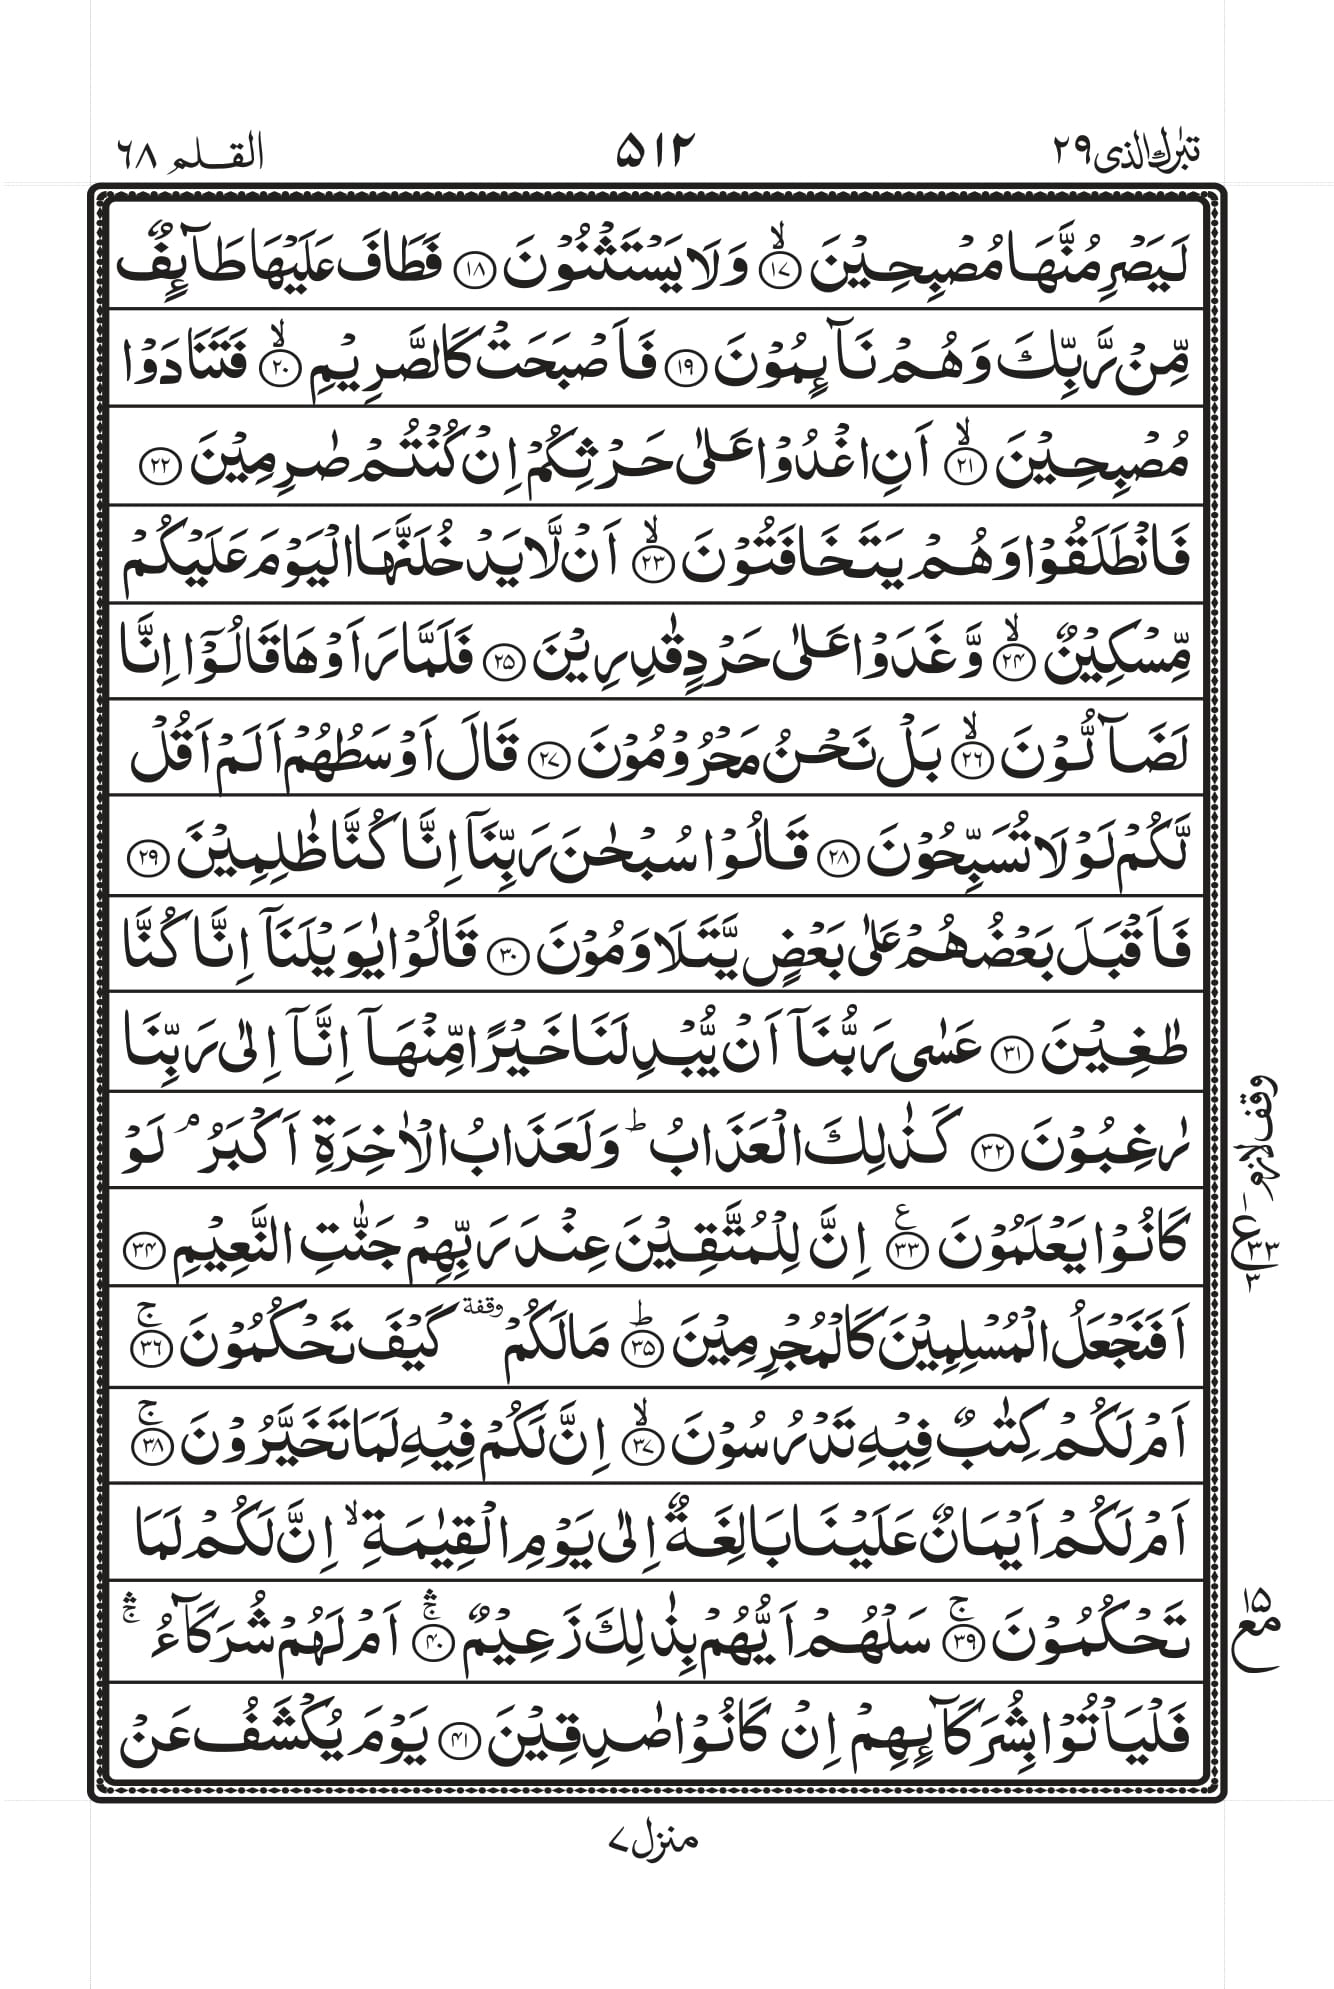 تبٰرك الذی ٢٩ ٥١٢ القلم ٦٨
لَيَصْرِمُنَّهَا مُصْبِحِيْنَ ۙ﴿١٧﴾ وَلَا يَسْتَثْنُوْنَ ﴿١٨﴾ فَطَافَ عَلَيْهَا طَآٮِٕفٌ
مِّنْ رَّبِّكَ وَهُمْ نَآٮِٕمُوْنَ ﴿١٩﴾ فَاَصْبَحَتْ كَالصَّرِيْمِ ۙ﴿٢٠﴾ فَتَنَادَوْا
مُصْبِحِيْنَ ۙ﴿٢١﴾ اَنِ اغْدُوْا عَلٰى حَرْثِكُمْ اِنْ كُنْتُمْ صٰرِمِيْنَ ﴿٢٢﴾
فَانْطَلَقُوْا وَهُمْ يَتَخَافَتُوْنَ ۙ﴿٢٣﴾ اَنْ لَّا يَدْخُلَنَّهَا الْيَوْمَ عَلَيْكُمْ
مِّسْكِيْنٌ ۙ﴿٢٤﴾ وَّغَدَوْا عَلٰى حَرْدٍ قٰدِرِيْنَ ﴿٢٥﴾ فَلَمَّا رَاَوْهَا قَالُوْۤا اِنَّا
لَضَآلُّوْنَ ۙ﴿٢٦﴾ بَلْ نَحْنُ مَحْرُوْمُوْنَ ﴿٢٧﴾ قَالَ اَوْسَطُهُمْ اَلَمْ اَقُلْ
لَّكُمْ لَوْلَا تُسَبِّحُوْنَ ﴿٢٨﴾ قَالُوْا سُبْحٰنَ رَبِّنَاۤ اِنَّا كُنَّا ظٰلِمِيْنَ ﴿٢٩﴾
فَاَقْبَلَ بَعْضُهُمْ عَلٰى بَعْضٍ يَّتَلَاوَمُوْنَ ﴿٣٠﴾ قَالُوْا يٰوَيْلَنَاۤ اِنَّا كُنَّا
طٰغِيْنَ ﴿٣١﴾ عَسٰى رَبُّنَاۤ اَنْ يُّبْدِلَنَا خَيْرًا مِّنْهَاۤ اِنَّاۤ اِلٰى رَبِّنَا
رٰغِبُوْنَ ﴿٣٢﴾ كَذٰلِكَ الْعَذَابُ ؕ وَلَعَذَابُ الْاٰخِرَةِ اَكْبَرُ ۘ لَوْ
وقف لازم
كَانُوْا يَعْلَمُوْنَ ﴿٣٣﴾ ع اِنَّ لِلْمُتَّقِيْنَ عِنْدَ رَبِّهِمْ جَنّٰتِ النَّعِيْمِ ﴿٣٤﴾
١ ع ٣٣ ٣
اَفَنَجْعَلُ الْمُسْلِمِيْنَ كَالْمُجْرِمِيْنَ ؕ﴿٣٥﴾ مَا لَكُمْ وقفة كَيْفَ تَحْكُمُوْنَ ۚ﴿٣٦﴾
اَمْ لَكُمْ كِتٰبٌ فِيْهِ تَدْرُسُوْنَ ۙ﴿٣٧﴾ اِنَّ لَكُمْ فِيْهِ لَمَا تَخَيَّرُوْنَ ۚ﴿٣٨﴾
اَمْ لَكُمْ اَيْمَانٌ عَلَيْنَا بَالِغَةٌ اِلٰى يَوْمِ الْقِيٰمَةِ ۙ اِنَّ لَكُمْ لَمَا
تَحْكُمُوْنَ ۚ﴿٣٩﴾ سَلْهُمْ اَيُّهُمْ بِذٰلِكَ زَعِيْمٌ ۛۚ﴿٤٠﴾ اَمْ لَهُمْ شُرَكَآءُ ۛۚ
١٥ مع
فَلْيَاْتُوْا بِشُرَكَآٮِٕهِمْ اِنْ كَانُوْا صٰدِقِيْنَ ﴿٤١﴾ يَوْمَ يُكْشَفُ عَنْ
منزل ٧